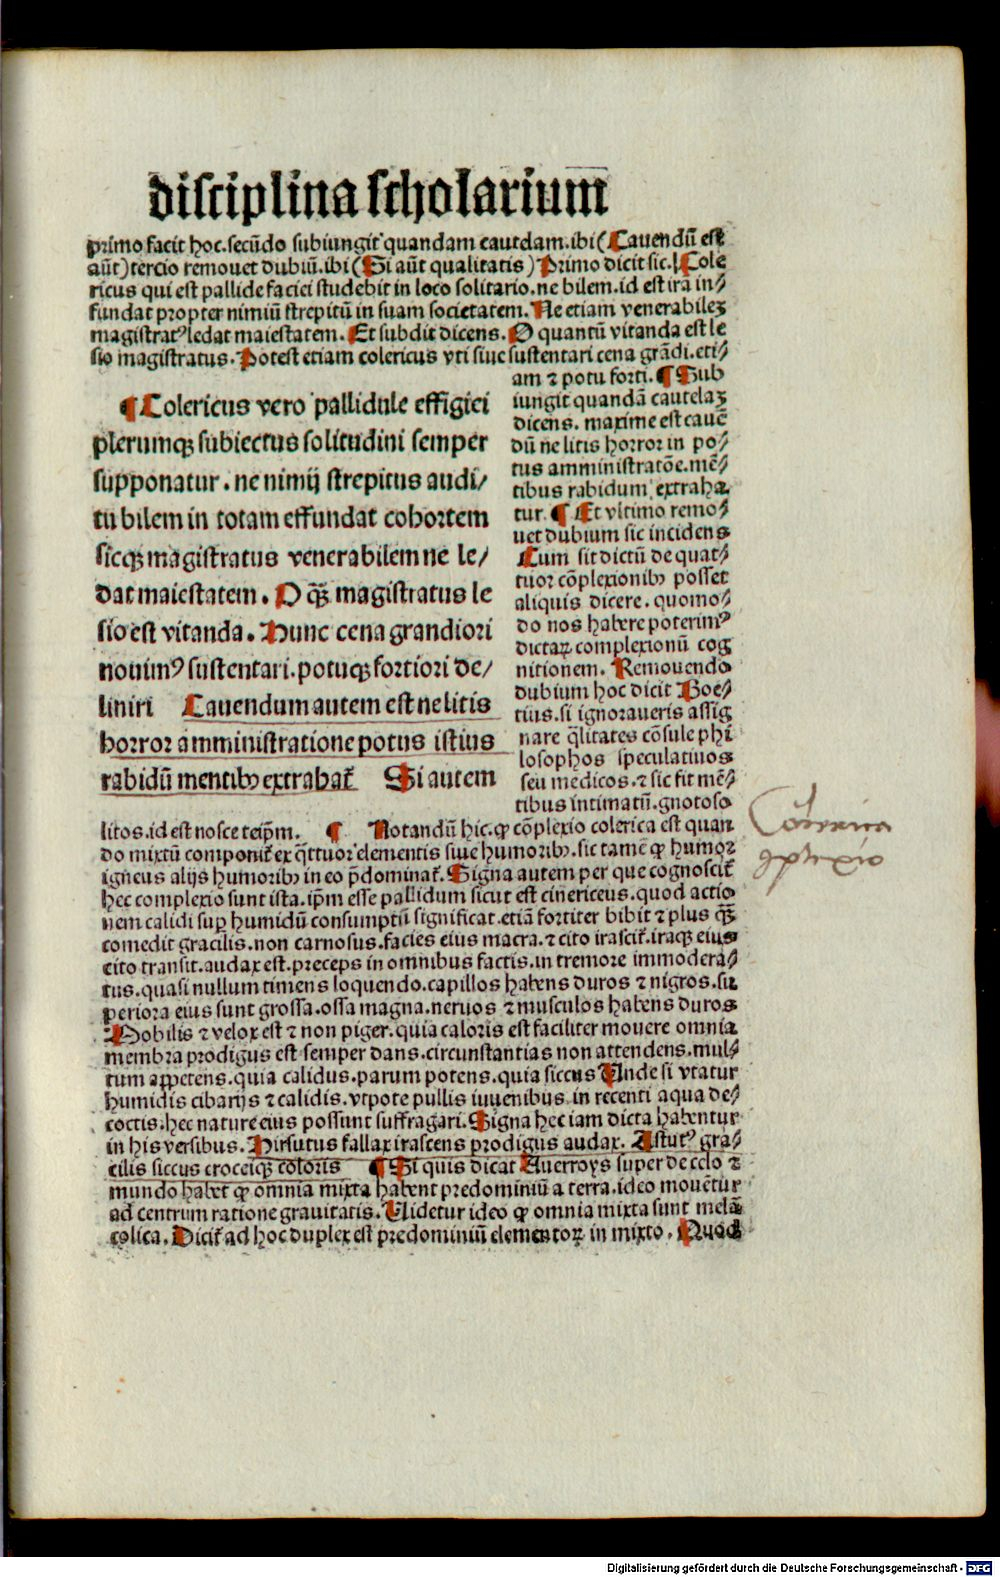 disciplina scholariu̅m
primo facit hoc. secūdo subiungit quandam cautelam. ibi (Cauendū est
aūt) tercio remouet dubiū. ibi (Si aūt qualitatis) Primo dicit sic. Cole
ricus qui est pallide faciei studebit in loco solitario. ne bilem. id est ira in⸗
fundat propter nimiū strepitū in suam societatem. Ne etiam venerabileꝫ
magistratꝰ ledat maiestatem. Et subdit dicens. O quantū vitanda est le
sio magistratus. Potest etiam colericus vti siue sustentari cena grādi. eti⸗
am ⁊ potu forti. ¶ Sub
iungit quandā cautelaꝫ
dicens. maxime est cauē
dū ne litis horror in po⸗
tus amministratōe. mē⸗
tibus rabidum extraha
tur. ¶ Et vltimo remo⸗
uet dubium sic incidens
Cum sit dictū de quat⸗
tuor cōplexionibꝫ posset
aliquis dicere. quomo⸗
do nos habere poterimꝰ
dictaꝝ complexionū cog
nitionem. Remouendo
dubium hoc dicit Boe⸗
tius. si ignoraueris assig
nare q̄litates cōsule phi
losophos speculatiuos
seu medicos. ⁊ sic fit mē⸗
tibus intimatū. gnotoso
¶ Colericus vero pallidule effigiei
plerumqꝫ subiectus solitudini semper
supponatur. ne nimij strepitus audi⸗
tu bilem in totam effundat cohortem
sicqꝫ magistratus venerabilem ne le⸗
dat maiestatem. O qꝫ̄ magistratus le
sio est vitanda. Hunc cena grandiori
nouimꝰ sustentari. potuqꝫ fortiori de⸗
liniri Cauendum autem est ne litis
horror amministratione potus istius
rabidū mentibꝫ extrahat᷑ Si autem
litos. id est nosce teip̄m. ¶ Notandū hic. ꝙ cōplexio colerica est quan
do mixtū componit᷑ ex q̄ttuor elementis siue humoribꝫ. sic tamē ꝙ humor
igneus alijs humoribꝫ in eo p̄dominat᷑. Signa autem per que cognoscit᷑
hec complexio sunt ista. ip̄m esse pallidum sicut est cinericeus. quod actio
nem calidi suꝑ humidū consumptū significat. etiā fortiter bibit ⁊ plus qꝫ̄
comedit gracilis. non carnosus. facies eius macra. ⁊ cito irascit᷑. iraqꝫ eius
cito transit. audax est. preceps in omnibus factis. in tremore immodera⸗
tus. quasi nullum timens loquendo. capillos habens duros ⁊ nigros. su
periora eius sunt grossa. ossa magna. neruos ⁊ musculos habens duros
Mobilis ⁊ velox est ⁊ non piger. quia caloris est faciliter mouere omnia
membra prodigus est semper dans. circunstantias non attendens. mul⸗
tum appetens. quia calidus. parum potens. quia siccus Unde si vtatur
humidis cibarijs ⁊ calidis. vtpote pullis iuuenibus in recenti aqua de⸗
coctis. hec nature eius possunt suffragari. Signa hec iam dicta habentur
in his versibus. Hirsutus fallax irascens prodigus audax. Astutꝰ gra⸗
cilis siccus croceiqꝫ coloris ¶ Si quis dicat Auerroys super de celo ⁊
mundo habet ꝙ omnia mixta habent predominiū a terra. ideo mouētur
ad centrum ratione grauitatis. Uidetur ideo ꝙ omnia mixta sunt melā
colica. Dicit᷑ ad hoc duplex est predominiū elementoꝝ in mixto. Quod
Colerica
ꝯplexio
Digitalisierung gefördert durch die Deutsche Forschungsgemeinschaft - DFG